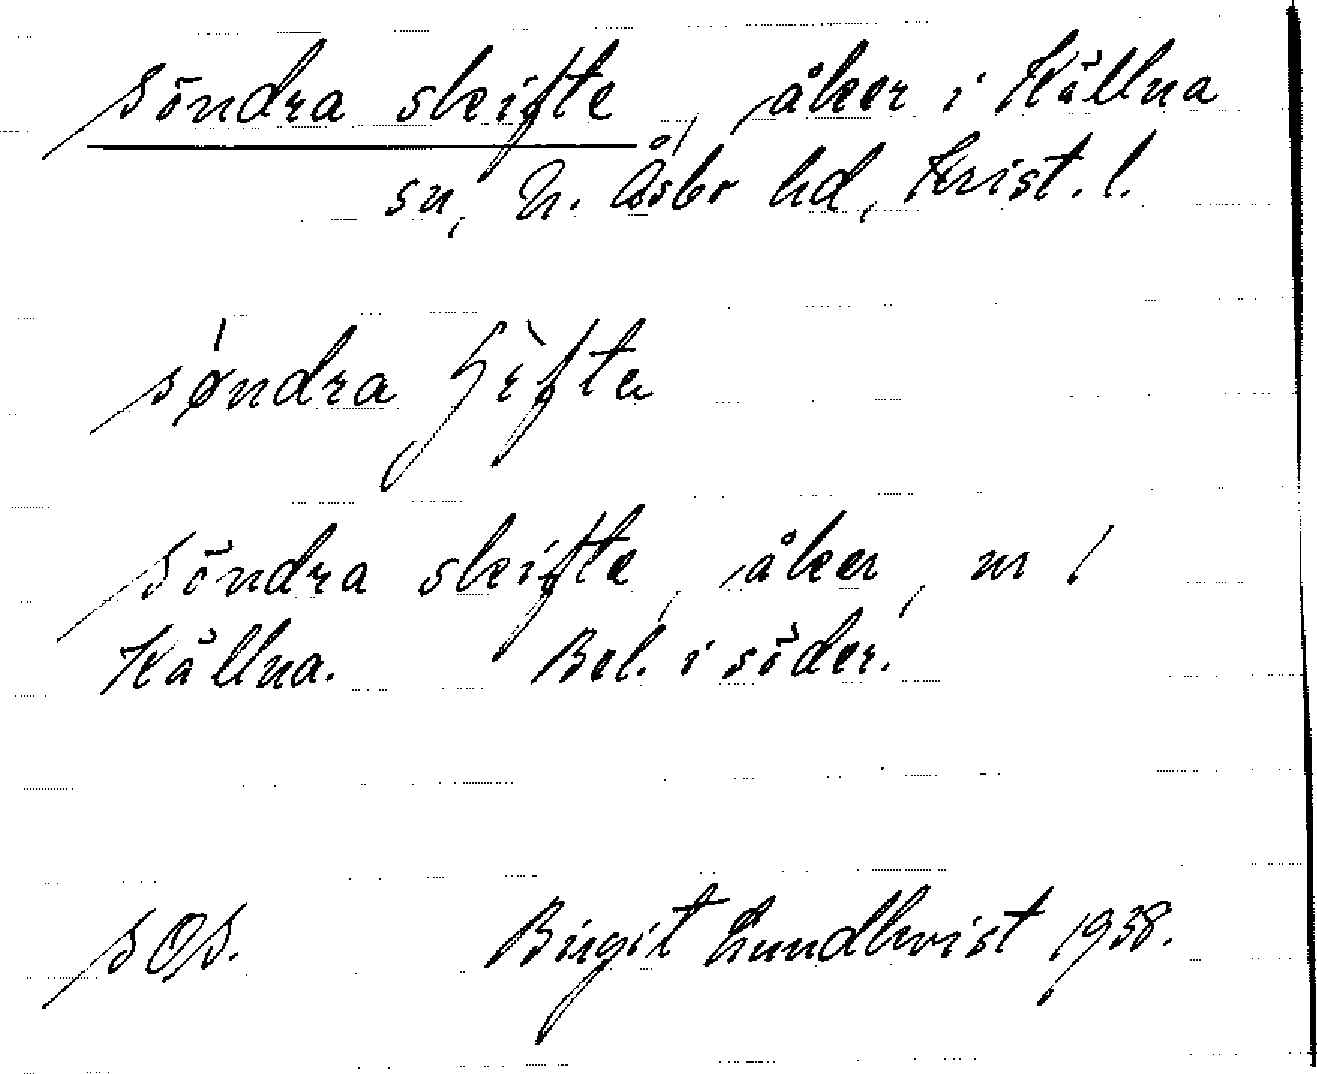 Söndra skifte, åker i Källna
sn, N. Åsbo hd, Krist. l.
søndra ʃìfta
Söndra skifte, åker, nr 1
Källna. Bel. i söder.
SOS. Birgit Lundkvist 1938.